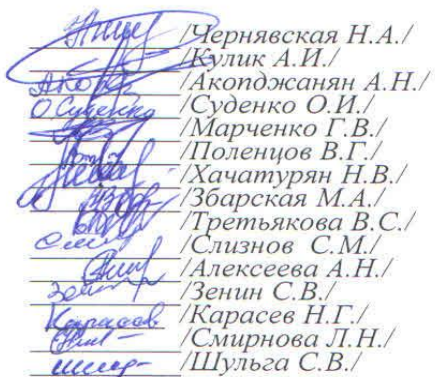 /Чернявская Н.А./
/Кулик А.И./
/Акопджанян А.Н./
О.Суденко /Суденко О.И./
/Марченко Г.В./
/Поленцов В.Г./
/Хачатурян Н.В./
/Збарская М.А./
/Третьякова В.С./
/Слизнов С.М./
/Алексеева А.Н./
/Зенин С.В./
Карасев /Карасев Н.Г./
/Смирнова Л.Н./
/Шульга С.В./